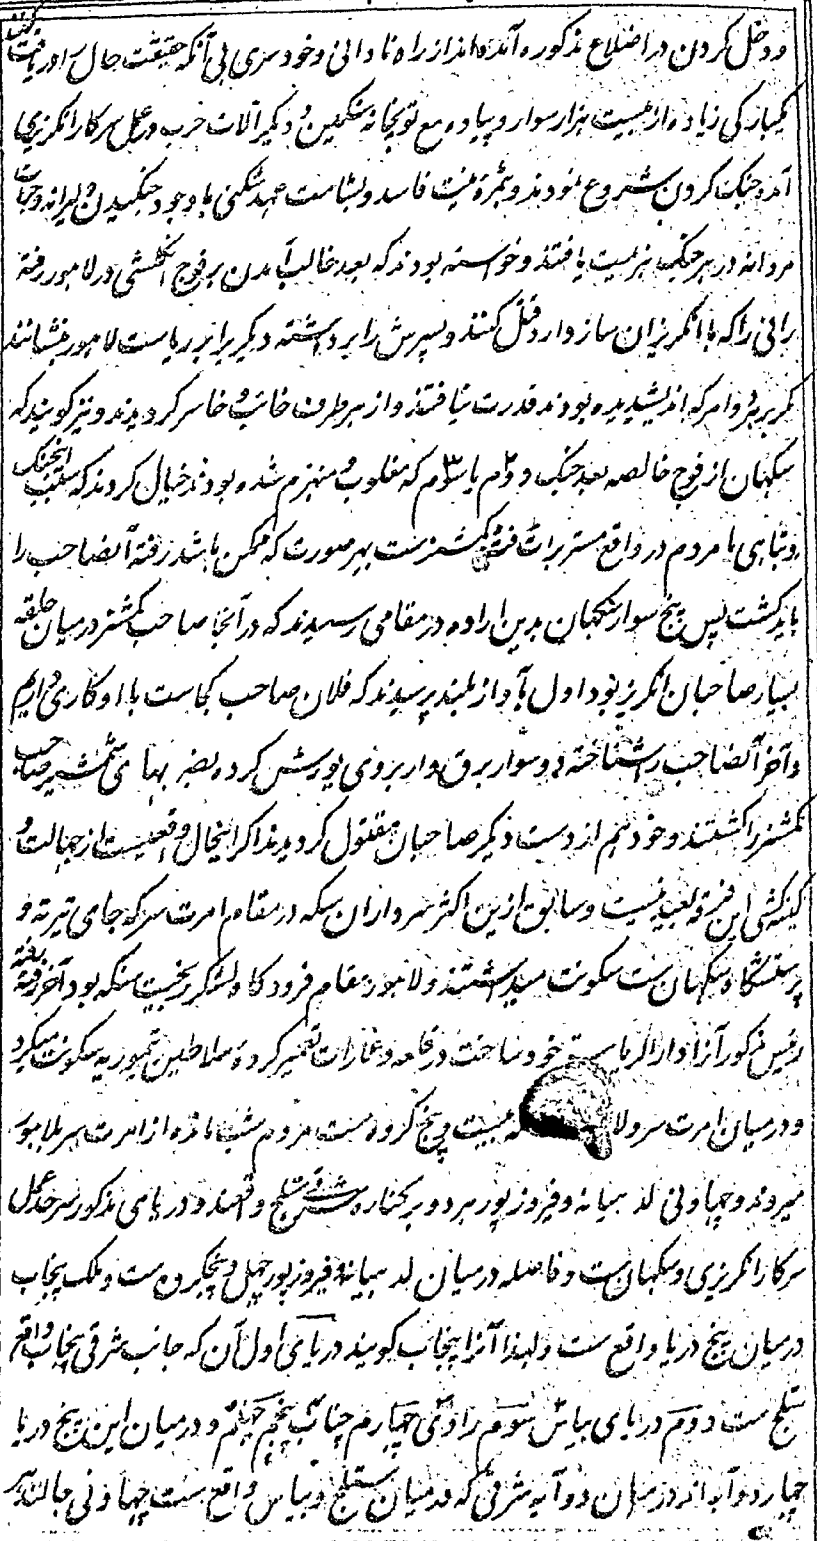 و دخل کردن در اضلاع مذکوره آمده اند از راه نادانی و خودسری بی آنکه حقیقت حال را دریافت کنند
یکبارگی زیاده از بیست هزار سوار و پیاده مع توپخانه سنگین و دیگر آلات حرب در عمل سرکار انگریزی
آمده جنگ کردن شروع نمودند و بثمرهٔ نیت فاسد و بشامت عهدشکنی با وجود جنگیدن دلیرانه و حملات
مردانه در هر جنگ هزیمت یافتند و خواسته بودند که بعد غالب آمدن بر فوج انگلشی در لاهور رفته
رانی را که با انگریزان ساز دارد قتل کنند و پسرش را برداشته دیگری را بر ریاست لاهور بنشانند
مگر بر هر دو امر که اندیشیده بودند قدرت نیافتند و از هر طرف خائب و خاسر گردیدند و نیز گویند که
سکهان از فوج خالصه بعد جنگ دوم یا سوم که مغلوب و منهزم شده بودند خیال کردند که سبب اینجنگ
و تباهی ما مردم در واقع مستر براٹ فٹ کمشنرست بهر صورت که ممکن باشد رفته آنصاحب را
باید کشت پس پنج سوار سکهان بدین اراده در مقامی رسیدند که در آنجا صاحب کمشنر درمیان حلقه
بسیار صاحبان انگریز بود اول بآواز بلند پرسیدند که فلان صاحب کجاست با او کاری داریم
و آخر آنصاحب را شناخته دو سوار برق وار بر وی یورش کرده بضربهای شمشیر صاحب
کمشنر را کشتند و خود هم از دست دیگر صاحبان مقتول گردیدند اگر اینحال واقعیست از جهالت و
کینه کشی این فرقه بعید نیست و سابق ازین اکثر سرداران سکه در مقام امرت سر که جای تیرته و
پرستشگاه سکهان ست سکونت میداشتند و لاهور مقام فرودگاه لشکر رنجیت سنگه بود آخر رفته رفته
رئیس مذکور آنرا دارالریاست خود ساخت در قلعه و عمارات تعمیر کردهٔ سلاطین تیموریه سکونت میکرد
و درمیان امرت سر و لا که بیست و پنج کروه ست مردم شب مانده از امرت سر بلاهور
میروند و چهاونی لدهیانه و فیروزپور هر دو بر کناره شرقی ستلج واقعند و دریای مذکور سرحد عمل
سرکار انگریزی و سکهان ست و فاصله درمیان لدهیانه و فیروزپور چهل و پنج کروه ست و ملک پنجاب
درمیان پنج دریا واقع ست و لهذا آنرا پنجاب گویند دریای اول آن که جانب شرقی پنجاب واقع
ستلج ست دوم دریای بیاس سوم راوی چهارم چناب پنجم جهلم و درمیان این پنج دریا
چهار دوآبه اند درمیان دوآبه شرقی که درمیان ستلج و بیاس واقع ست چهاونی جالندهر